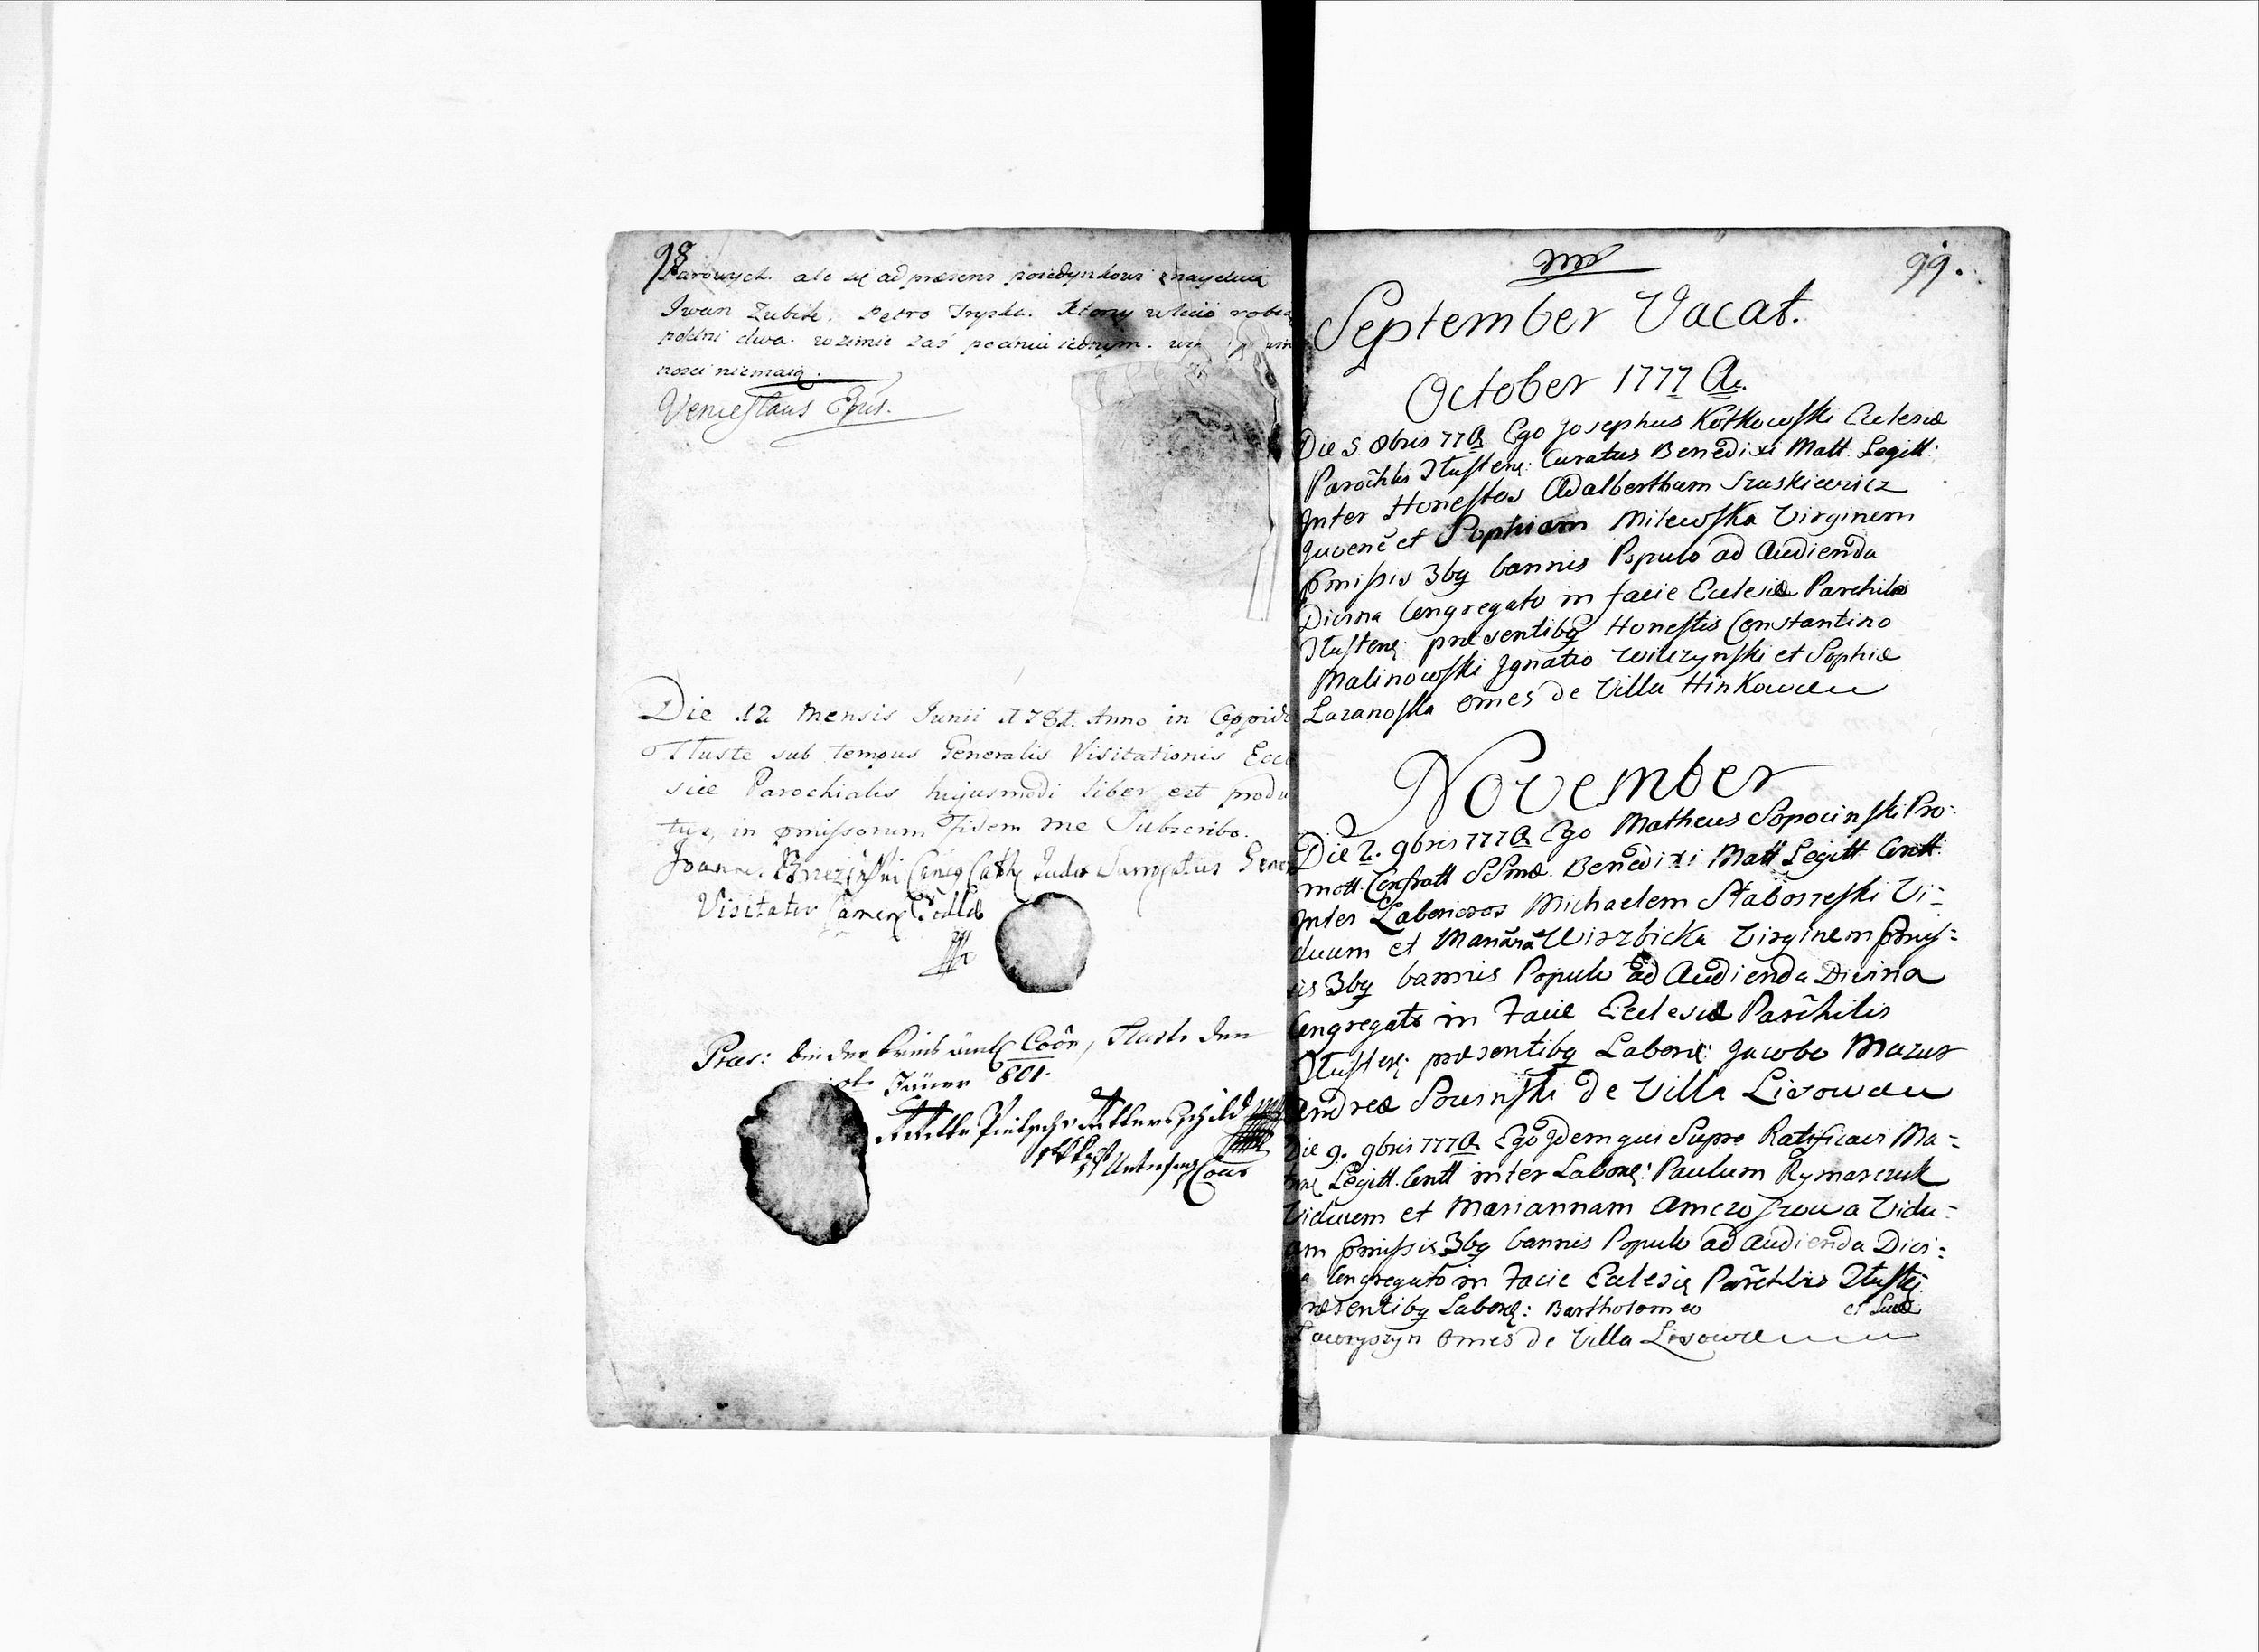 98
Parowych. ale się ad præsens poiedynkowi znayduią
Iwan Zubik. Petro Tryska. Ktorzy w lecie robią
po dni dwa. w zimie zaś po dniu iednym.
nosci niemaią.
Venceslaus Eppus.
Die 12 Mensis Junii 1781. Anno in Oppido
Tłuste sub tempus Generalis Visitationis Eccle
siæ Parochialis hujusmodi liber est produ
tus, in præmissorum fidem me Subscribo.
Joannes Brzeziński Judex Surrogatus Gener
Visitator
Præs: bei der Coon, Tluste den
Jäner 801.
99.
September Vacat.
October 1777 A.
Die 5. 8bris 777 Ego Josephus Kotkowski Eclesiæ
Parochlis Tłusten: Curatus Benedixi Matt: Legitt:
Inter Honestos Adalberthum Szuskiewicz
Juvenē et Sophiam Milewska Virginem
Pmissis 3bq bannis Populo ad Audienda
Divina Congregato in facie Eclesiæ Parchilis
Tłusten: præsentibq Honestis Constantino
Malinowski Ignatio Wilczynski et Sophiæ
Lazanoska omes de Villa Hinkowce
November
Die 2. 9bris 777 Ego Matheus Sopocinski Pro-
mott: Confratt SSmæ. Benedixi Matt Legitt Contt:
Inter Laboriosos Michaelem Staboszeski Vi-
duum et Mariānā Wirzbicka Virginem Pmis-
sis 3bq bannis Populo ad Audienda Divina
Congregato in Facie Eclesiæ Parchilis
Tłusten: præsentibq Labors: Jacobo Mazur
Andreæ Sowinski de Villa Lisowce
Die 9. 9bris 777 Ego Idem qui Supro Ratificavi Ma-
trm Legitt. Contt inter Labors: Paulum Rymarczuk
Viduum et Mariannam Vidu-
am Pmissis 3bq bannis Populo ad Audienda Divi-
a Congregato in Facie Eclesiæ Parchlis Tłuste:
ræsentibq Labors: Bartholomeo et Lucæ
Ławryszyn omes de Villa Lisowce